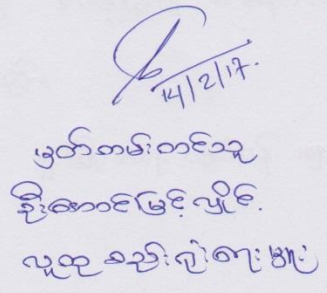 14/2/17.
မှတ်တမ်းတင်သူ
ဦးအောင်မြင့်လှိုင်
လူထု စည်းရုံးရေးမှူး